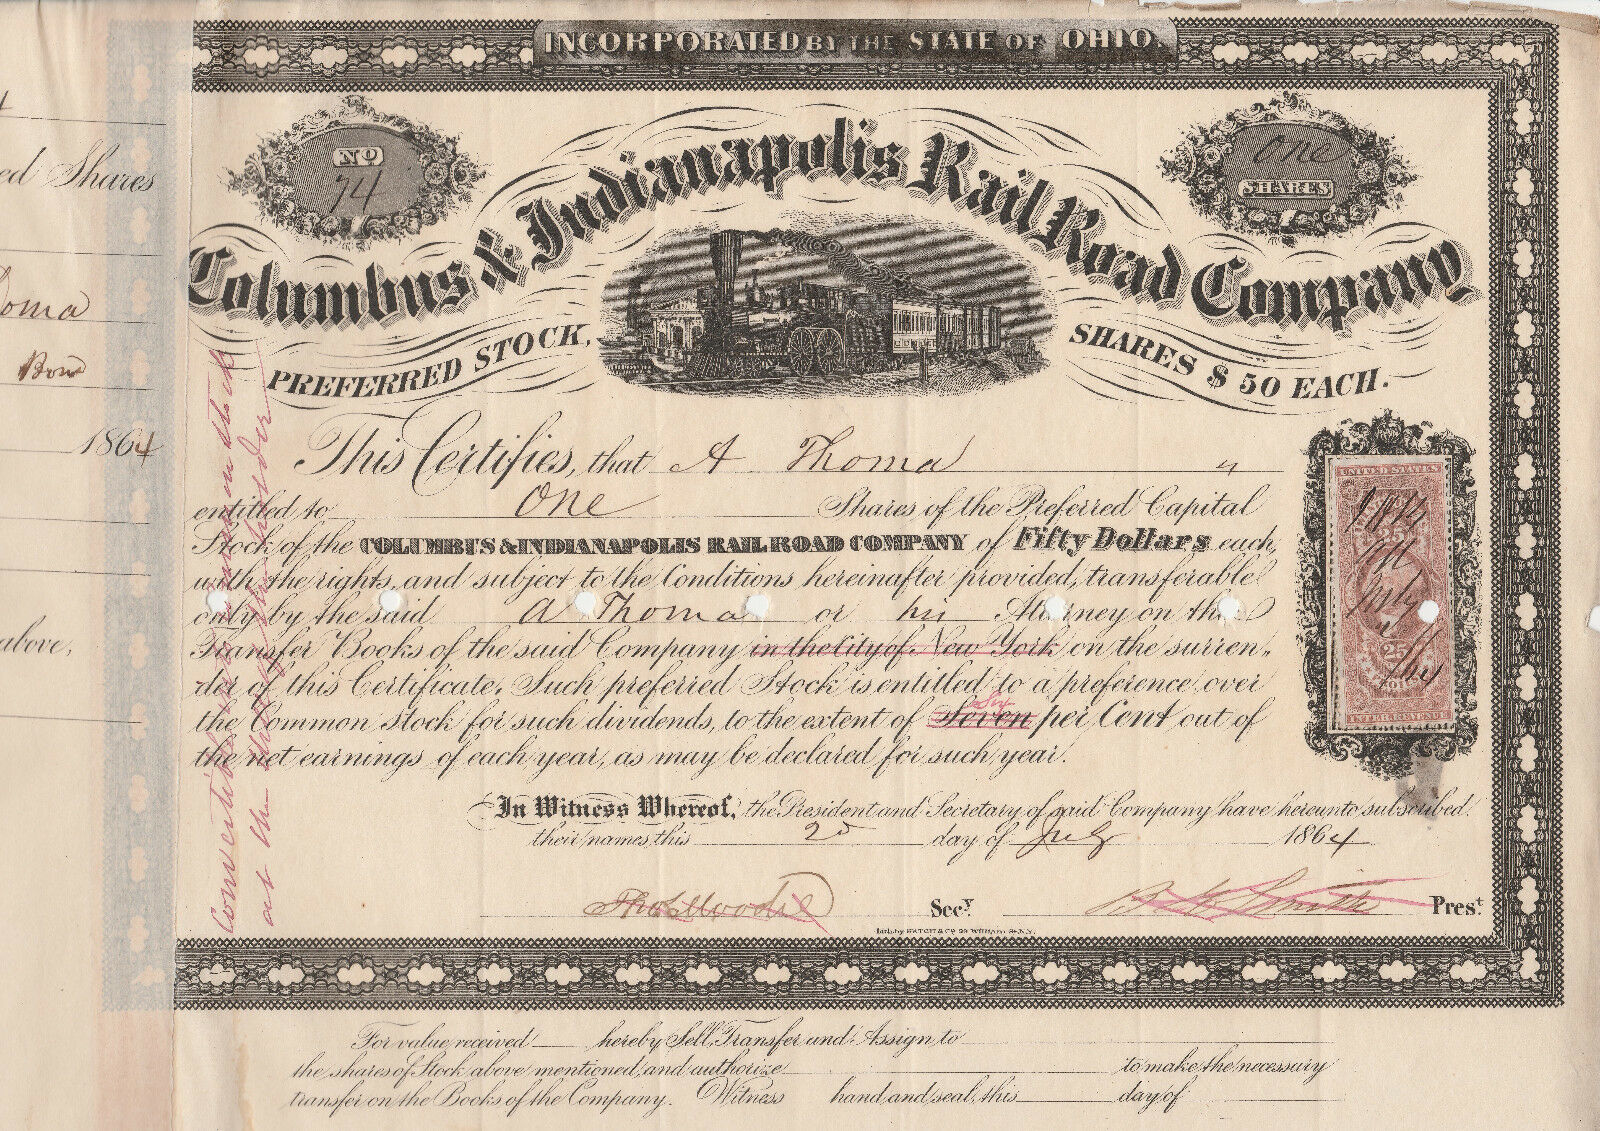 INCORPORATED BY THE STATE OF OHIO.
No
74
One
SHARES
Columbus & Indianapolis Rail Road Company
PREFERRED STOCK,
SHARES $ 50 EACH.
ed Shares
oma
1864
above,
This Certifies, that A Thoma is
entitled to One Shares of the Preferred Capital
Stock of the COLUMBUS & INDIANAPOLIS RAIL ROAD COMPANY of Fifty Dollars each,
with the rights, and subject to the Conditions hereinafter provided, transferable
only by the said A Thoma or his Attorney on the
Transfer Books of the said Company in the City of New York on the surren-
der of this Certificate. Such preferred Stock is entitled to a preference over
the Common Stock for such dividends, to the extent of Seven Six per Cent out of
the net earnings of each year, as may be declared for such year.
Convertible into common stock
at the option of the holder
UNITED STATES
25
INTER. REVENUE
In Witness Whereof, the President and Secretary of said Company have hereunto subscribed
their names, this 2d day of July 1864
Secy.
B E Smith Prest.
Lith. by HATCH & Co. 29 William St. N.Y.
For value received hereby Sell, Transfer and Assign to
the shares of Stock above mentioned, and authorize to make the necessary
transfer on the Books of the Company. Witness hand and seal, this day of